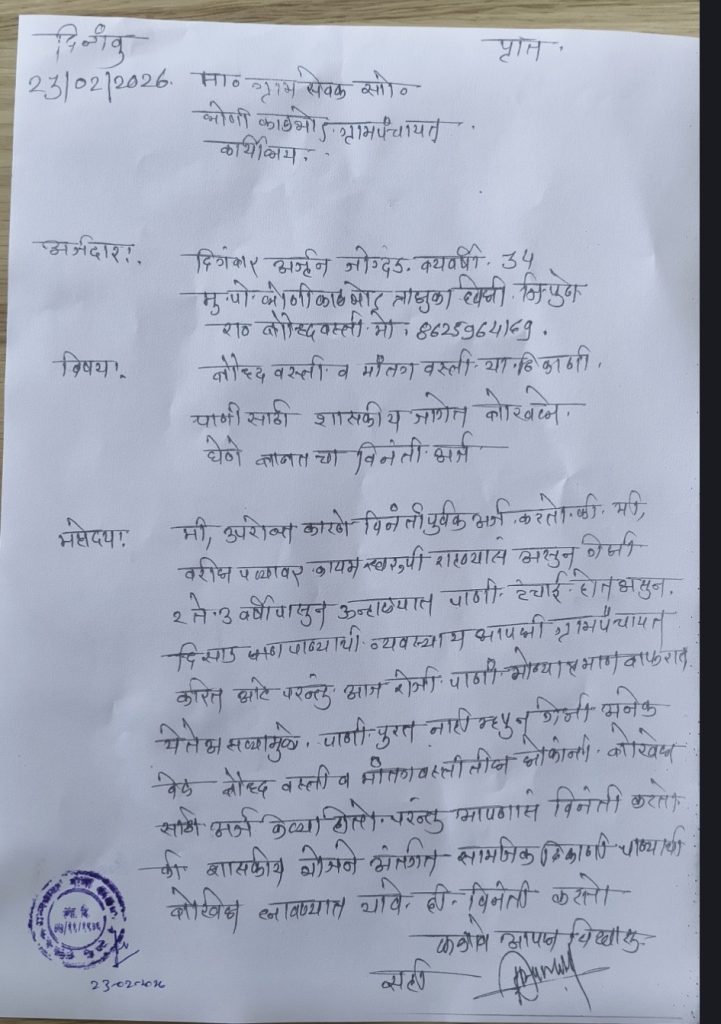 दिनांक
प्रति.
23/02/2026. मा० ग्राम सेवक सो०
लोणी काळभोर ग्रामपंचायत
कार्यालय.
अर्जदार:. दिगंबर अर्जुन जोगदंड. वयवर्षे. 34
मु.पो. लोणी काळभोर तालुका हवेली. जि. पुणे
रा० बौद्ध वस्ती. मो. 8625964169.
विषय:. बौद्ध वस्ती व मातंग वस्ती या. ठिकाणी.
पाणी साठी शासकीय जागेत बोरवेल.
घेणे बाबतचा विनंती अर्ज
महोदय:. मी, उपरोक्त कारणे विनंतीपुर्वक अर्ज. करतो. की. मी,
वरील पत्यावर कायम स्वरुपी राहण्यास असुन गेली
२ ते 3 वर्षांपासुन उन्हाळ्यात पाणी. टंचाई होत असुन.
पाण्याची व्यवस्था आपली ग्रामपंचायत
करित आहे परन्तु आज रोजी पाणी मोठ्या प्रमाणे वापरात
येत असल्यामुळे. पाणी पुरत नाही म्हणुन गेली अनेक
वेळ बौद्ध वस्ती व मातंग वस्तीतील लोकांनी. बोरवेल
साठी अर्ज केल्या होतो. परन्तु आपणास विनंती करतो
की शासकीय योजने अंतर्गत सामजिक ठिकाणी पाण्याची
बोरवेल लावण्यात यावे. ही. विनंती करतो
कळावे आपला विश्वासु.
सही
23-02-2026